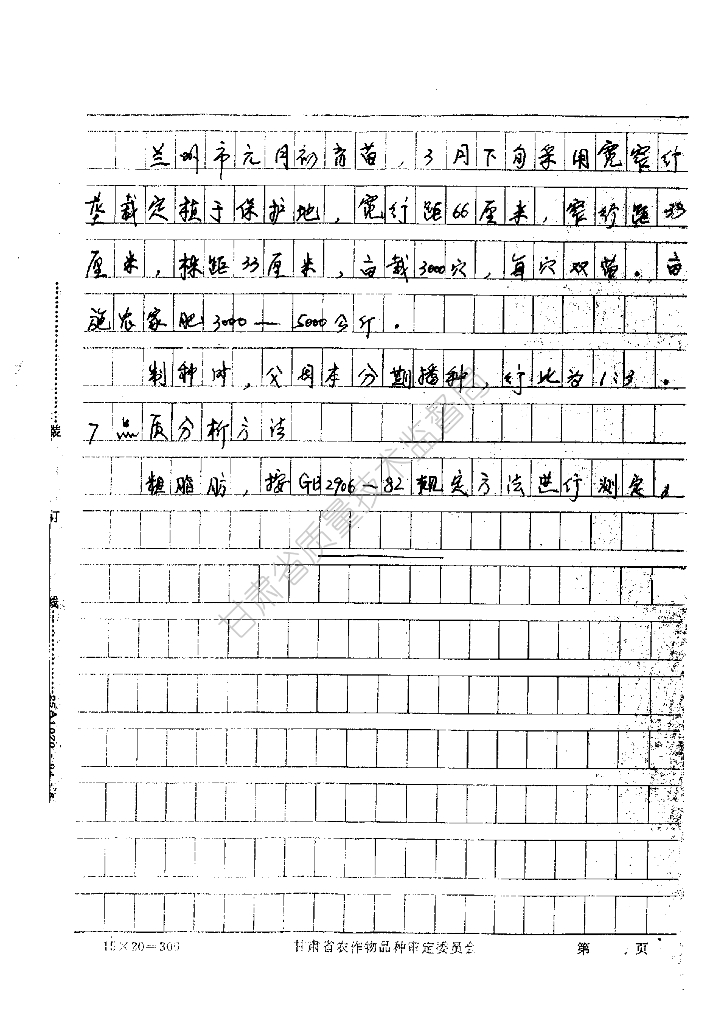 兰州市元月初育苗，3月下旬采用宽窄行
垄栽定植于保护地，宽行距66厘米，窄行距33
厘米，株距33厘米，亩栽3000穴，每穴双苗。亩
施农家肥3000—5000公斤。
制种时，父母本分期播种，行比为1:3。
7品质分析方法
粗脂肪，按GB2906—82规定方法进行测定。
甘肃省质量技术监督局
装
订
线
15×20=300
甘肃省农作物品种审定委员会
第 页